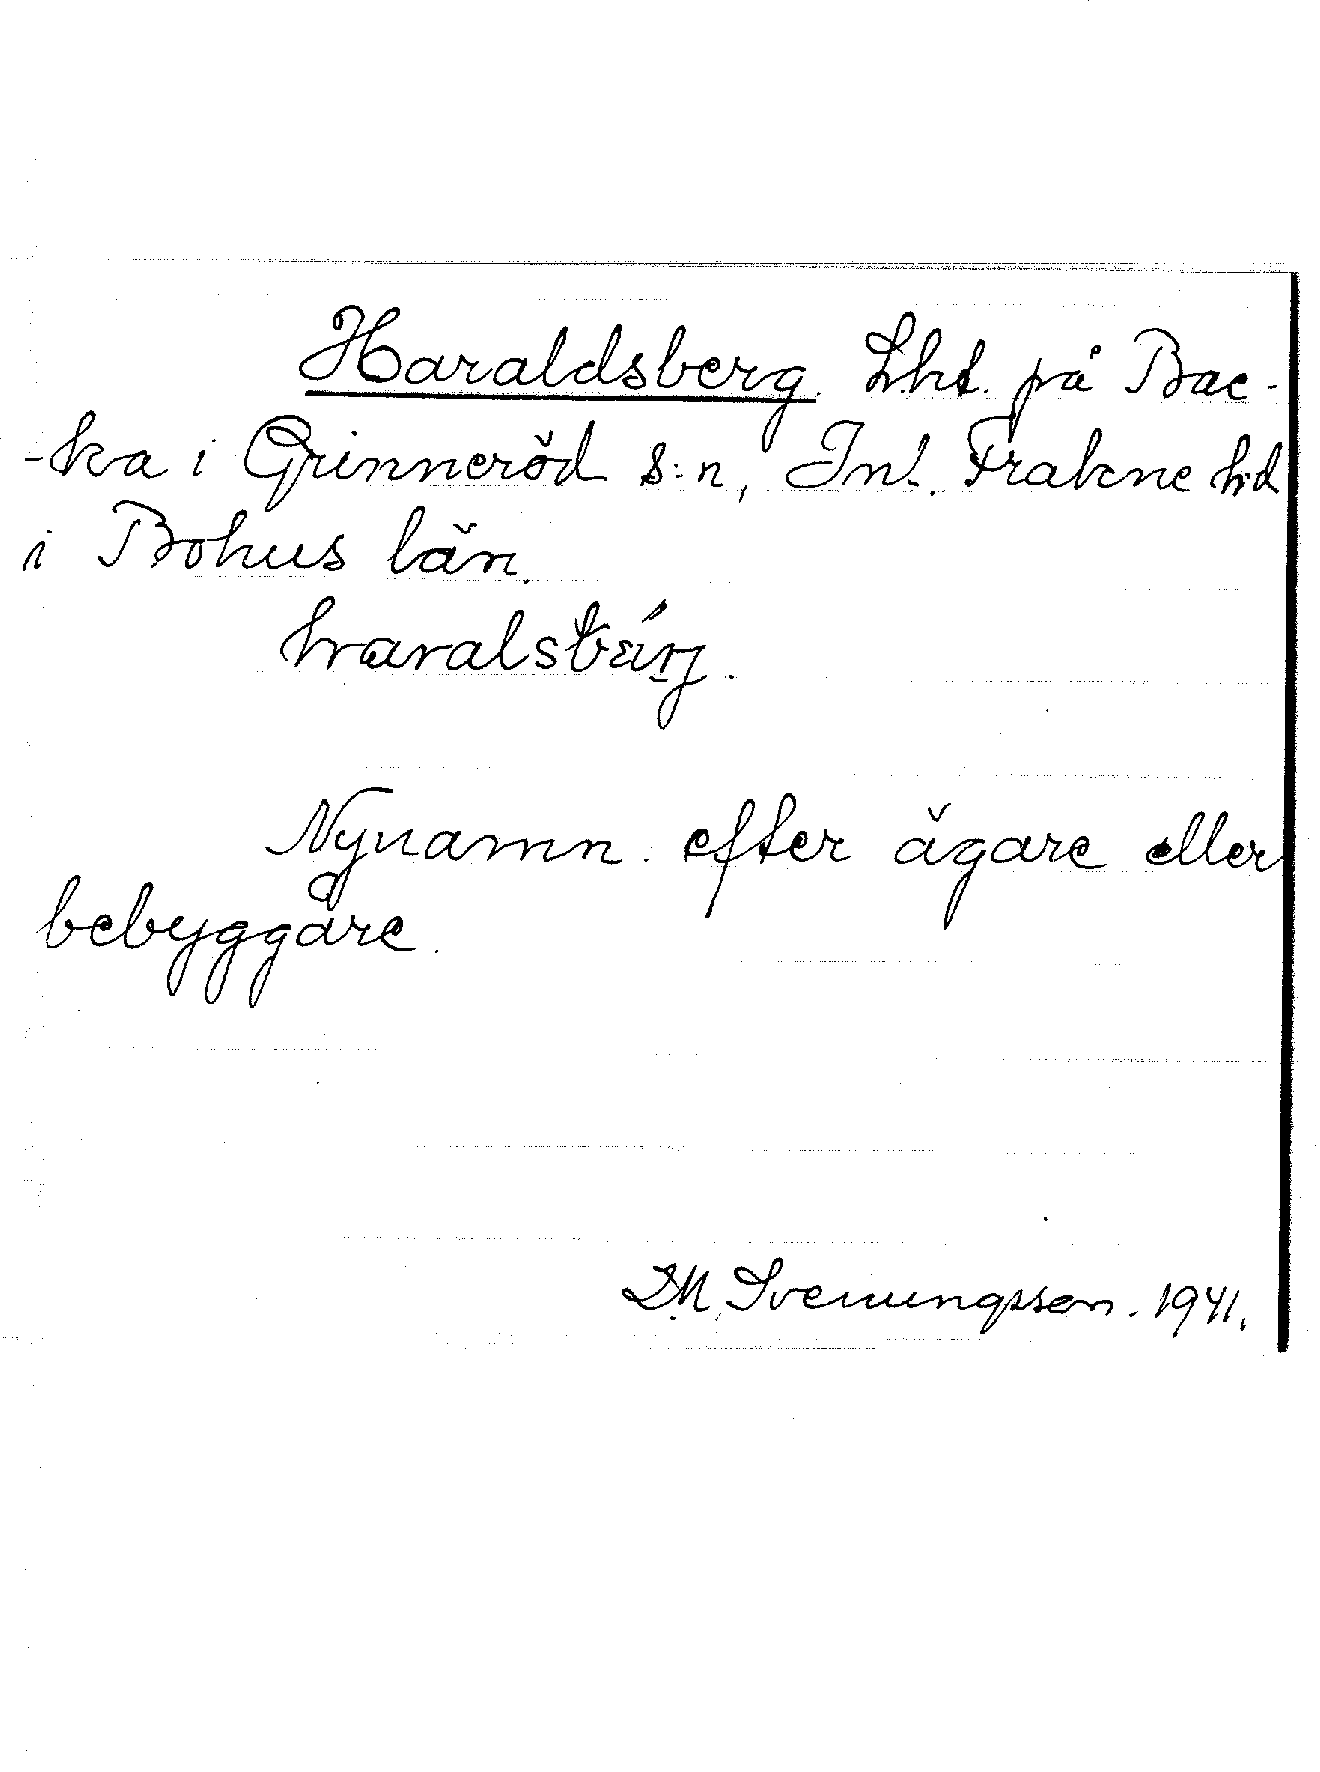 Haraldsberg. Lht. på Bac-
-ka i Grinneröd s:n, Inl. Frakne hd
i Bohus län.
haralsbärj.
Nynamn efter ägare eller
bebyggare.
D.M. Svenungsson. 1941.